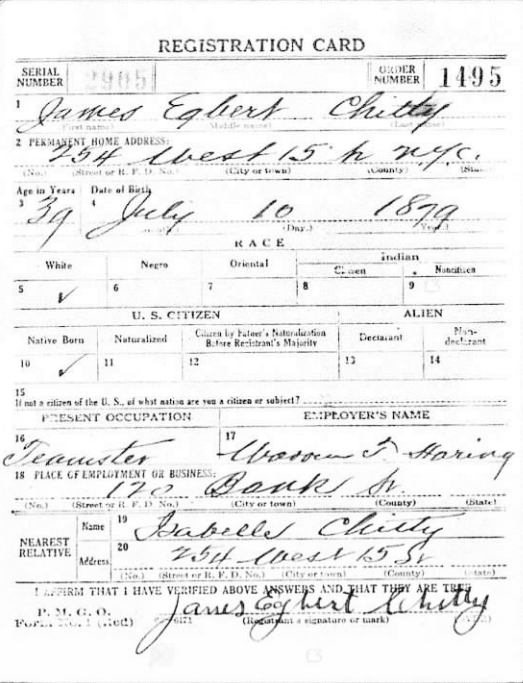 REGISTRATION CARD
SERIAL NUMBER 2905 ORDER NUMBER 1495
1 James Egbert Chitty
(First name) (Middle name) (Last name)
2 PERMANENT HOME ADDRESS:
254 West 15 N.Y.C.
(No.) (Street or R. F. D. No.) (City or town) (County) (State)
Age in Years Date of Birth
3 39 4 July 10 1879
(Day.) (Year.)
RACE
White Negro Oriental Indian
Citizen Noncitizen
5 ✓ 6 7 8 9
U. S. CITIZEN ALIEN
Native Born Naturalized Citizen by Father's Naturalization Before Registrant's Majority Declarant Non-declarant
10 ✓ 11 12 13 14
15
If not a citizen of the U. S., of what nation are you a citizen or subject?
PRESENT OCCUPATION EMPLOYER'S NAME
16 Teamster 17
18 PLACE OF EMPLOYMENT OR BUSINESS:
120 Bank St
(No.) (Street or R. F. D. No.) (City or town) (County) (State)
NEAREST RELATIVE
Name 19 Isabelle Chitty
Address 20 254 West 15 St
(No.) (Street or R. F. D. No.) (City or town) (County) (State)
I AFFIRM THAT I HAVE VERIFIED ABOVE ANSWERS AND THAT THEY ARE TRUE
P. M. G. O.
Form No. 1 (Red) James Egbert Chitty
(Registrant's signature or mark)